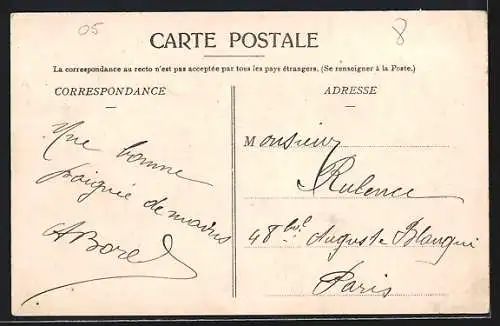 05
8
CARTE POSTALE
La correspondance au recto n'est pas acceptée par tous les pays étrangers. (Se renseigner à la Poste.)
CORRESPONDANCE
Une bonne
poignée de mains
A Borel
ADRESSE
Monsieur
Rulence
48 Bvd Auguste Blanqui
Paris